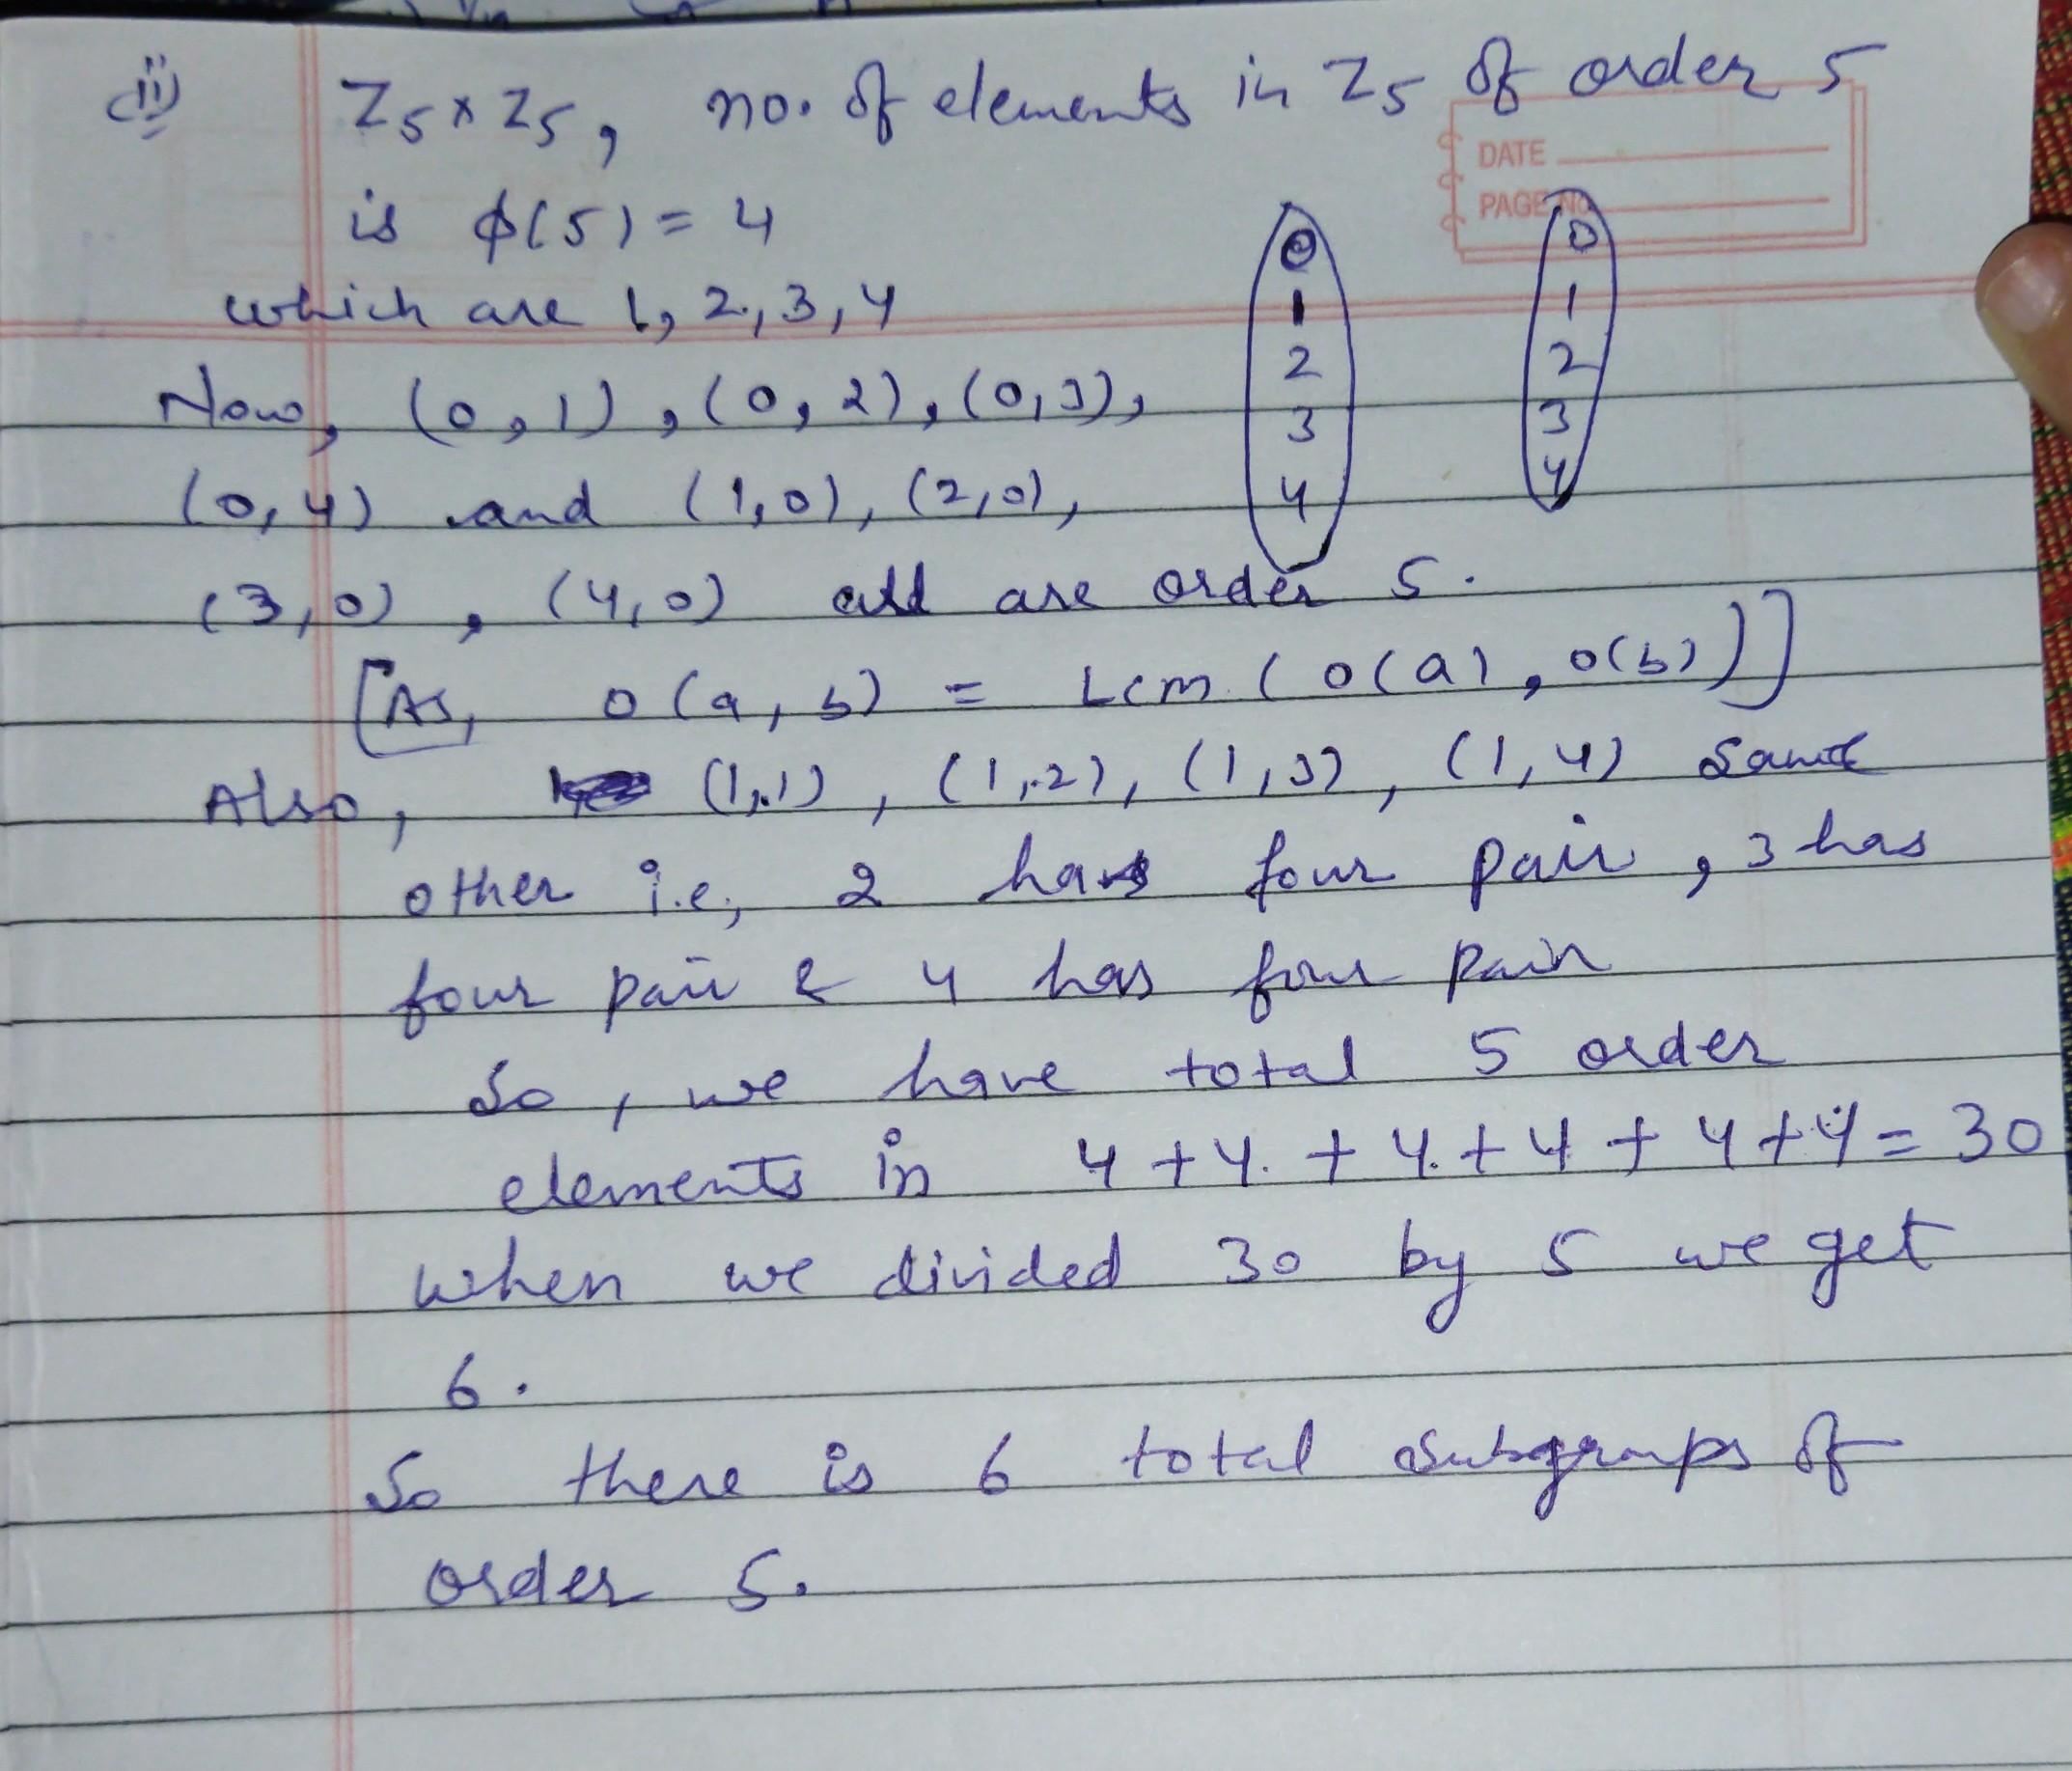 (ii) Z5 x Z5, no. of elements in Z5 of order 5
DATE
PAGE NO.
is ϕ(5) = 4
which are 1, 2, 3, 4
0 0
1 1
2 2
3 3
4 4
Now, (0,1), (0,2), (0,3),
(0,4) and (1,0), (2,0),
(3,0), (4,0) all are order 5.
[As, o(a,b) = Lcm (o(a), o(b))]
Also, (1,1), (1,2), (1,3), (1,4) same
other i.e, 2 has four pair, 3 has
four pair & 4 has four pair
So, we have total 5 order
elements in 4+4+4+4+4+4=30
when we divided 30 by 5 we get
6.
So there is 6 total subgroups of
order 5.